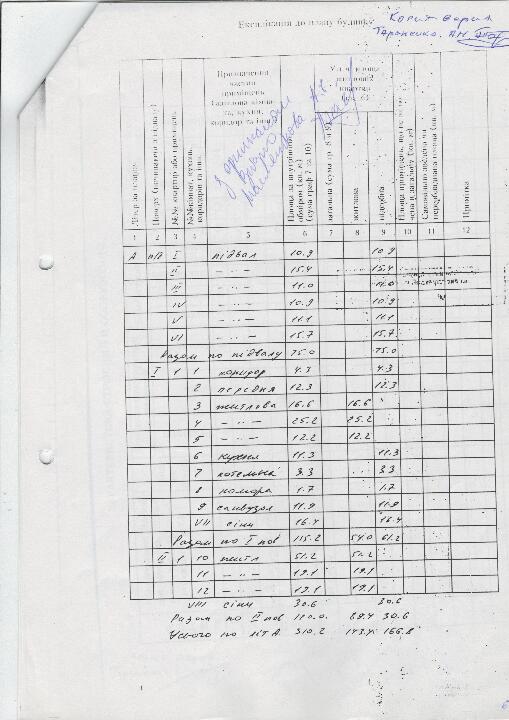 Експлікація до плану будинку
Копит вірна
Тараненко. А.М.
З оригіналом
Літер за планом
Поверх (починаючи з підвалу)
№№ квартир або приміщень
№№ кімнат, кухонь, коридорів та інш.
Призначення частин приміщень: житлова кімната, кухня, коридор та інш.
Площа за внутрішнім обміром (кв. м) (сума граф 7 та 10)
загальна (сума гр. 8 и 9)
житлова
підсобна
Самовільно зведена чи переобладнана площа (кв. м)
Примітка
1 2 3 4 5 6 7 8 9 10 11 12
А п/д I підвал 10.9 10.9
II – " – 15.4 15.4
III – " – 11.0 11.0
IV – " – 10.9 10.9
V – " – 11.1 11.1
VI – " – 15.7 15.7
Разом по підвалу 75.0 75.0
I 1 1 коридор 4.3 4.3
2 передня 12.3 12.3
3 житлова 16.6 16.6
4 – " – 25.2 25.2
5 – " – 12.2 12.2
6 кухня 11.3 11.3
7 котельня 3.3 3.3
8 комора 1.7 1.7
9 санвузол 11.9 11.9
VII сіни 16.4 16.4
Разом по I пов 115.2 54.0 61.2
II 1 10 житл 51.2 51.2
11 – " – 19.1 19.1
12 – " – 19.1 19.1
VIII сіни 30.6 30.6
Разом по II пов 120.0 89.4 30.6
Усього по літ А 310.2 143.4 166.8